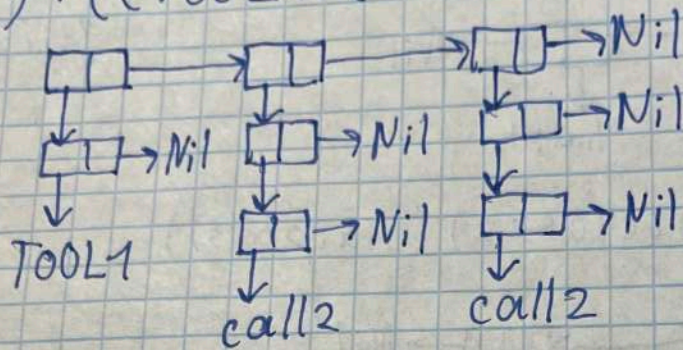 Nil
Nil
Nil Nil
Nil
Nil
TOOL1
call2 call2